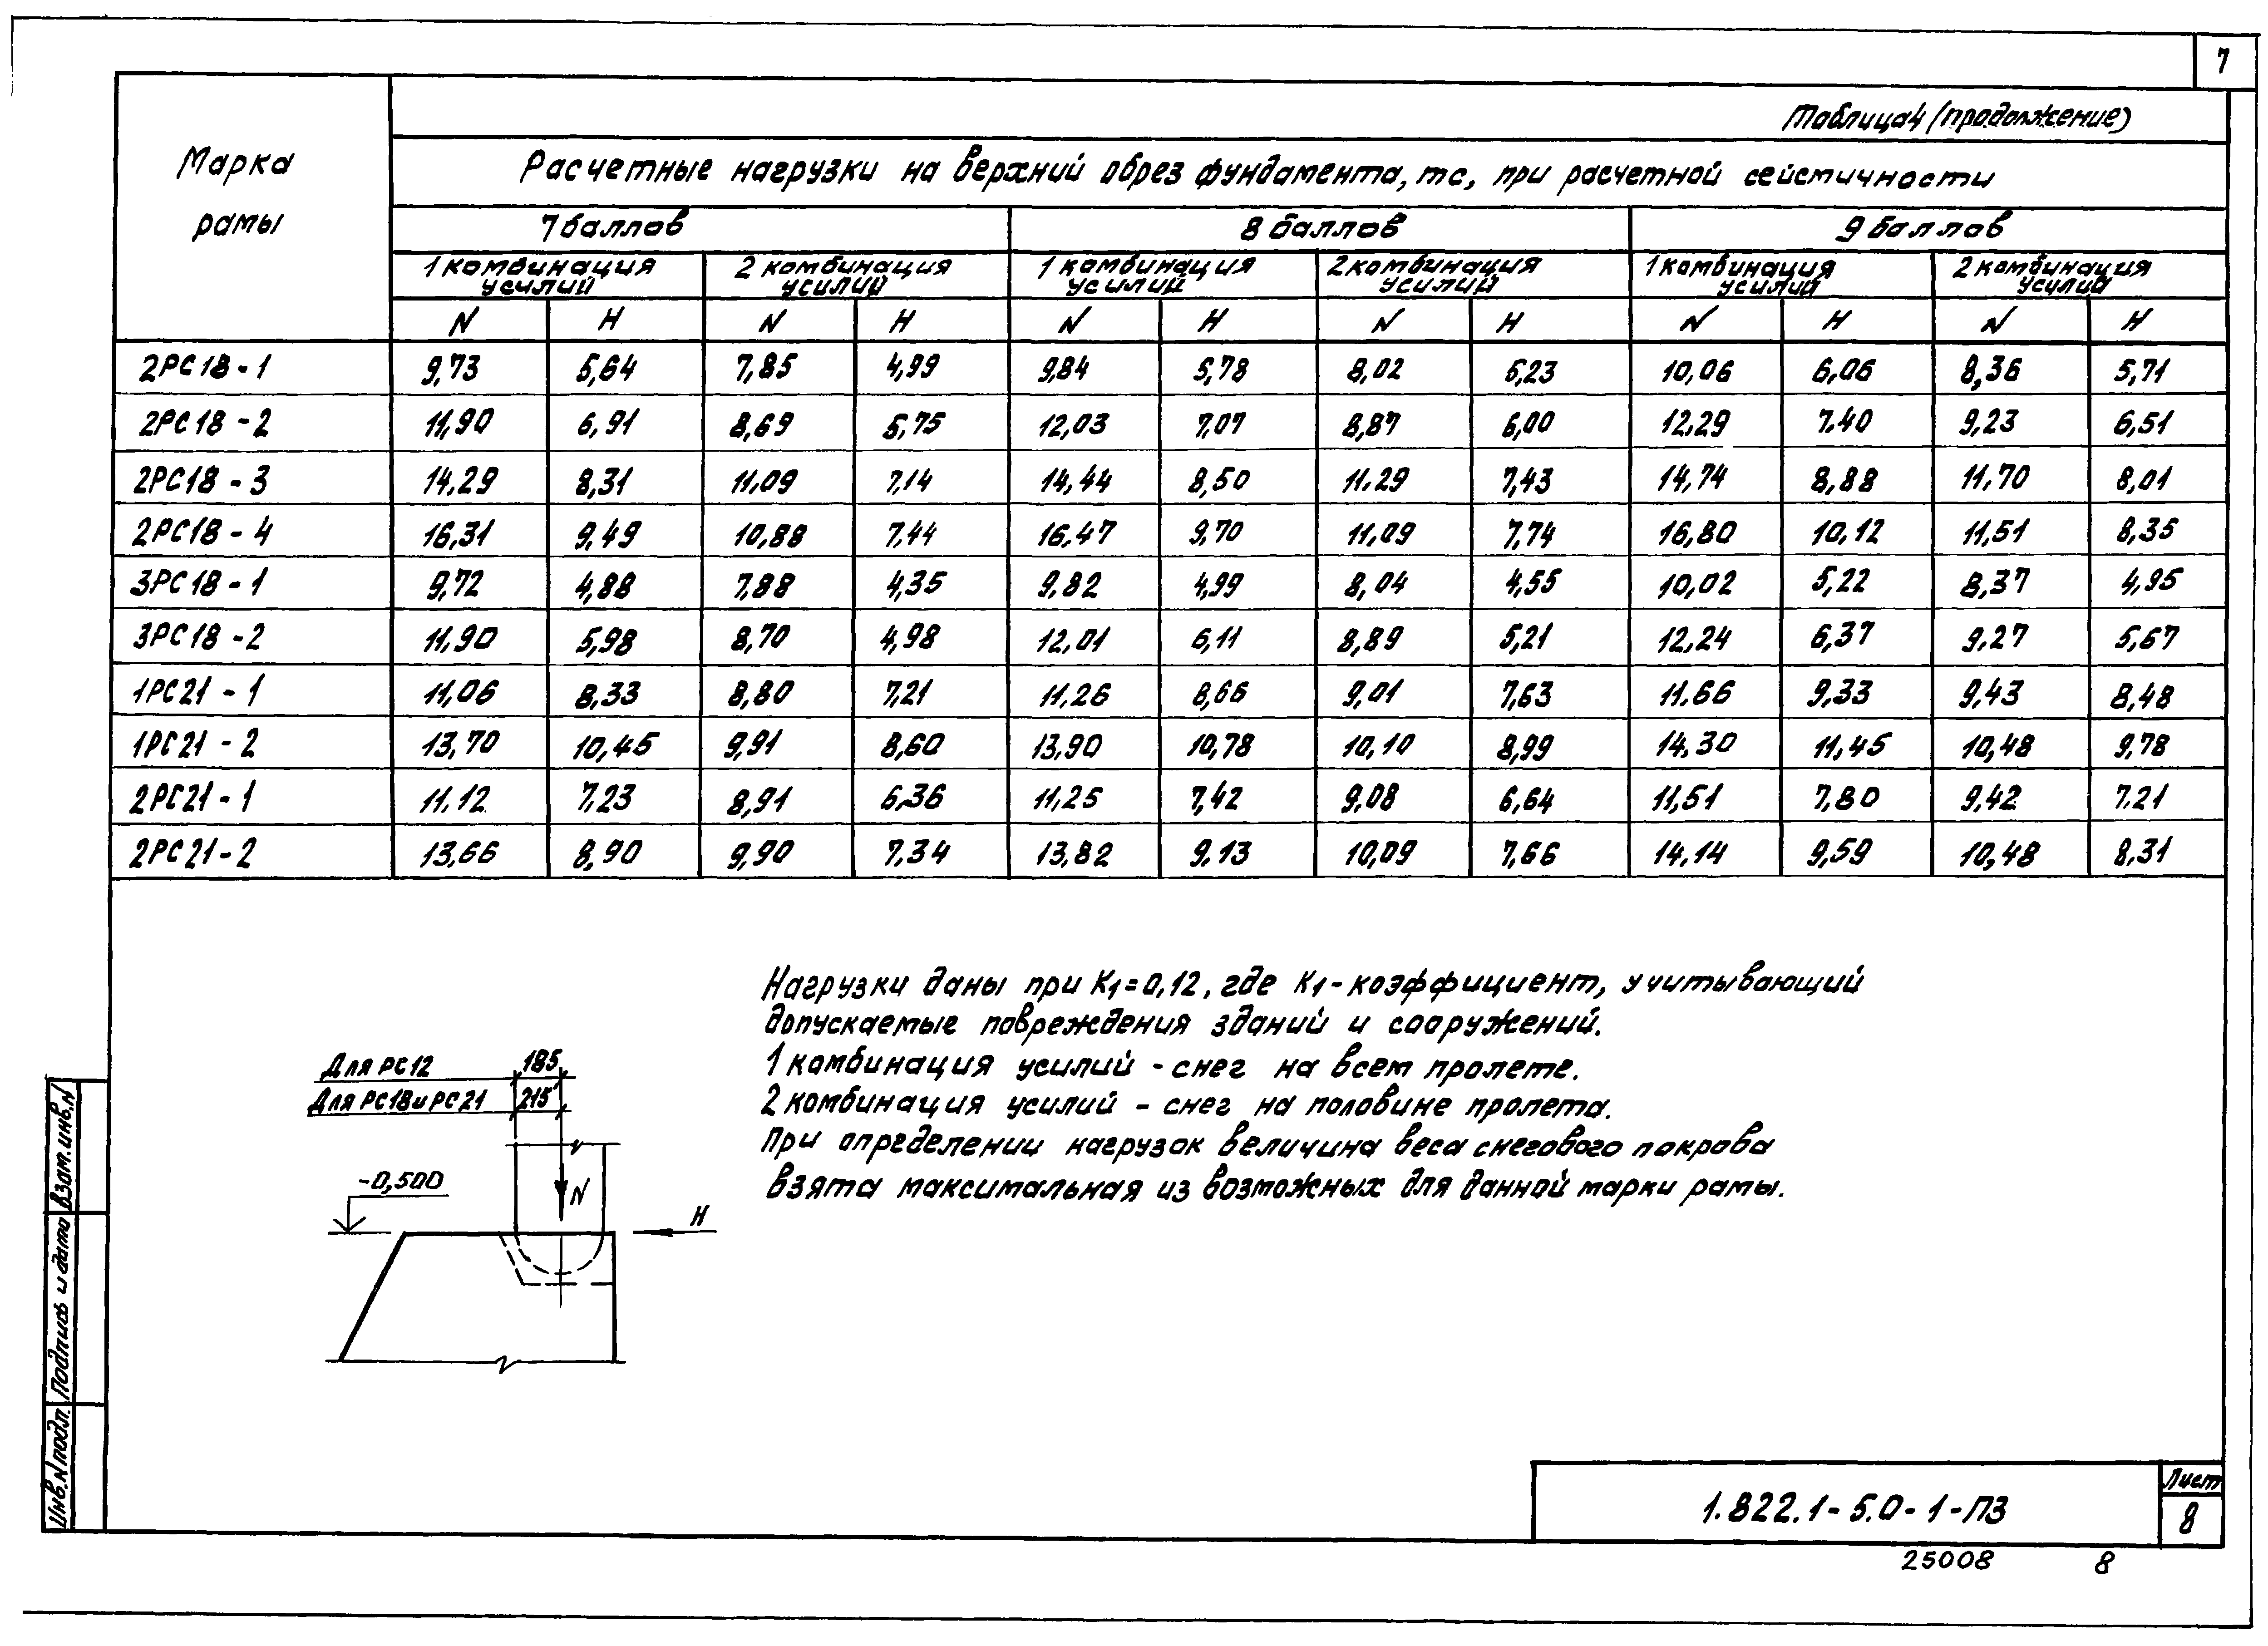 7
Таблица 4 (продолжение)
Марка рамы
Расчетные нагрузки на верхний обрез фундамента, тс, при расчетной сейсмичности
7 баллов 8 баллов 9 баллов
1 комбинация усилий 2 комбинация усилий 1 комбинация усилий 2 комбинация усилий 1 комбинация усилий 2 комбинация усилий
N H N H N H N H N H N H
2РС18-1 9,73 5,64 7,85 4,99 9,84 5,78 8,02 5,23 10,06 6,06 8,36 5,71
2РС18-2 11,90 6,91 8,69 5,75 12,03 7,07 8,87 6,00 12,29 7,40 9,23 6,51
2РС18-3 14,29 8,31 11,09 7,14 14,44 8,50 11,29 7,43 14,74 8,88 11,70 8,01
2РС18-4 16,31 9,49 10,88 7,44 16,47 9,70 11,09 7,74 16,80 10,12 11,51 8,35
3РС18-1 9,72 4,88 7,88 4,35 9,82 4,99 8,04 4,55 10,02 5,22 8,37 4,95
3РС18-2 11,90 5,98 8,70 4,98 12,01 6,11 8,89 5,21 12,24 6,37 9,27 5,67
1РС21-1 11,06 8,33 8,80 7,21 11,26 8,66 9,01 7,63 11,66 9,33 9,43 8,48
1РС21-2 13,70 10,45 9,91 8,60 13,90 10,78 10,10 8,99 14,30 11,45 10,48 9,78
2РС21-1 11,12 7,23 8,91 6,36 11,25 7,42 9,08 6,64 11,51 7,80 9,42 7,21
2РС21-2 13,66 8,90 9,90 7,34 13,82 9,13 10,09 7,66 14,14 9,59 10,48 8,31
Нагрузки даны при К1=0,12, где К1-коэффициент, учитывающий
допускаемые повреждения зданий и сооружений.
1 комбинация усилий - снег на всем пролете.
2 комбинация усилий - снег на половине пролета.
При определении нагрузок величина веса снегового покрова
взята максимальная из возможных для данной марки рамы.
Для РС12 185
Для РС18 и РС21 215
-0,500
N
H
Взам. инв. N
Подпись и дата
Инв. N подл.
1.822.1-5.0-1-ПЗ
Лист
8
25008 8